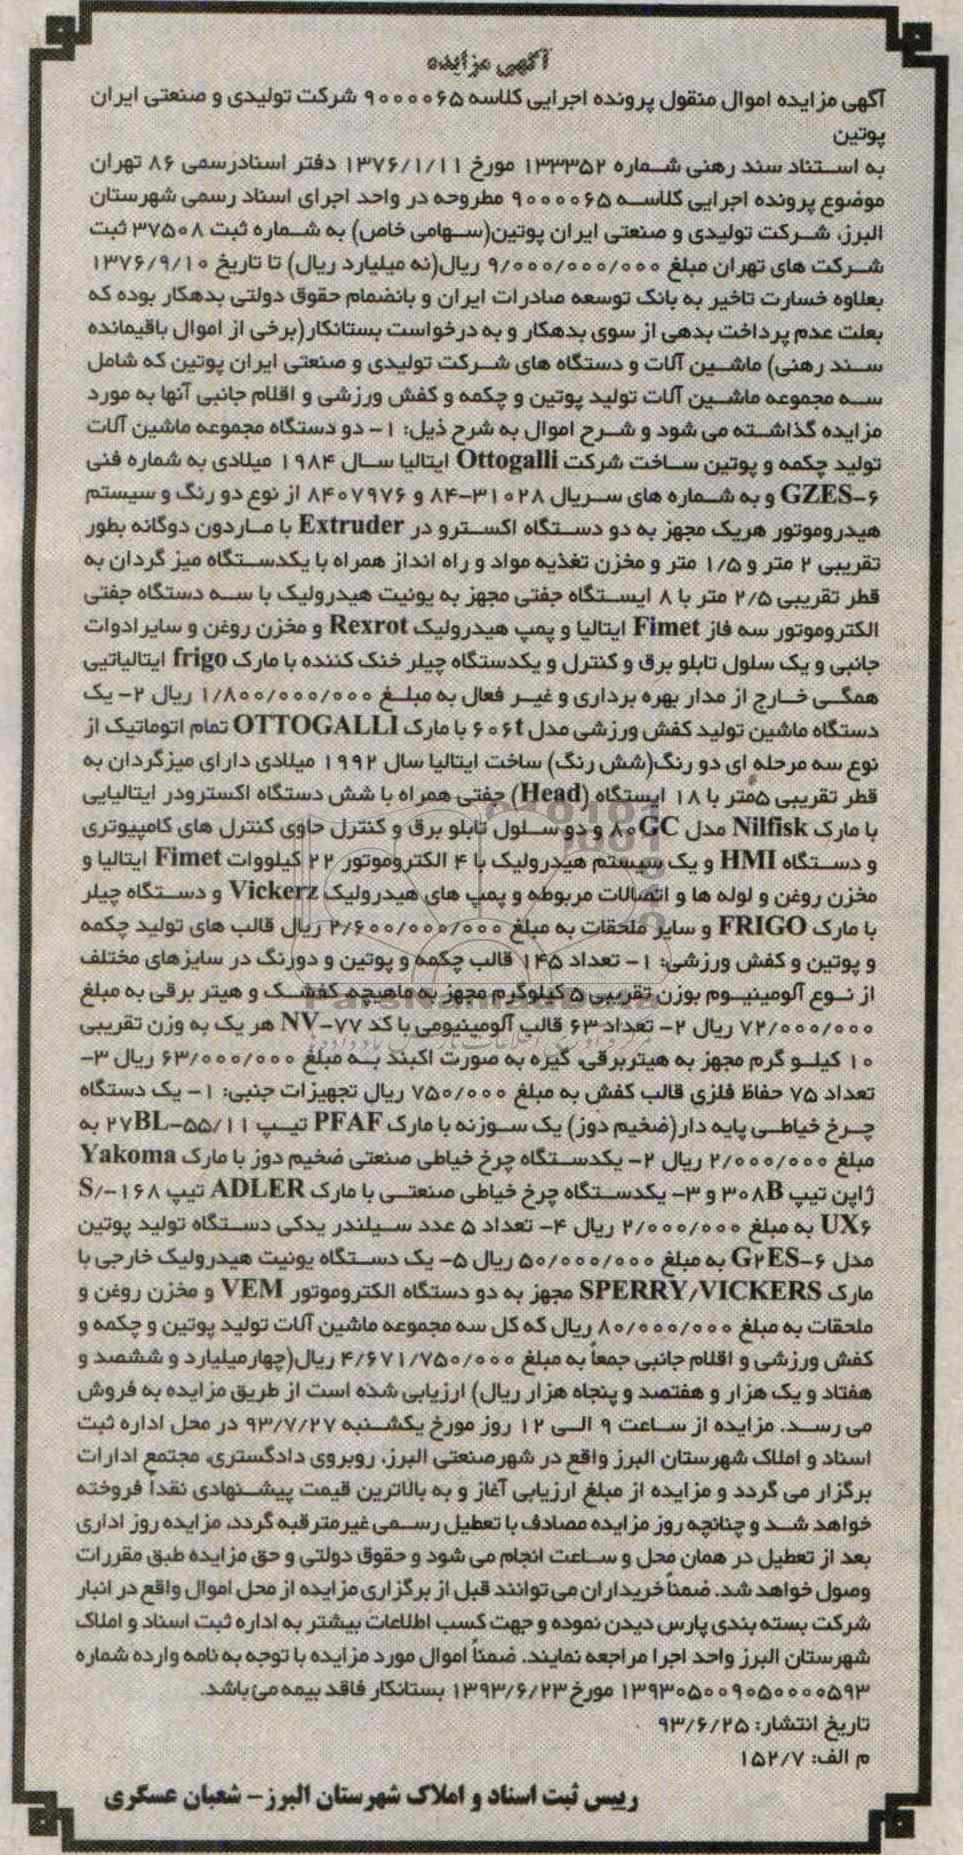 آگهی مزایده
آگهی مزایده اموال منقول پرونده اجرایی کلاسه ۹۰۰۰۰۶۵ شرکت تولیدی و صنعتی ایران
پوتین
به استناد سند رهنی شماره ۱۳۳۳۵۲ مورخ ۱۳۷۶/۱/۱۱ دفتر اسنادرسمی ۸۶ تهران
موضوع پرونده اجرایی کلاسه ۹۰۰۰۰۶۵ مطروحه در واحد اجرای اسناد رسمی شهرستان
البرز، شرکت تولیدی و صنعتی ایران پوتین(سهامی خاص) به شماره ثبت ۳۷۵۰۸ ثبت
شرکت های تهران مبلغ ۹/۰۰۰/۰۰۰/۰۰۰ ریال(نه میلیارد ریال) تا تاریخ ۱۳۷۶/۹/۱۰
بعلاوه خسارت تاخیر به بانک توسعه صادرات ایران و بانضمام حقوق دولتی بدهکار بوده که
بعلت عدم پرداخت بدهی از سوی بدهکار و به درخواست بستانکار(برخی از اموال باقیمانده
سند رهنی) ماشین آلات و دستگاه های شرکت تولیدی و صنعتی ایران پوتین که شامل
سه مجموعه ماشین آلات تولید پوتین و چکمه و کفش ورزشی و اقلام جانبی آنها به مورد
مزایده گذاشته می شود و شرح اموال به شرح ذیل: ۱- دو دستگاه مجموعه ماشین آلات
تولید چکمه و پوتین ساخت شرکت Ottogalli ایتالیا سال ۱۹۸۴ میلادی به شماره فنی
GZES-۶ و به شماره های سریال ۳۱۰۲۸-۸۴ و ۸۴۰۷۹۷۶ از نوع دو رنگ و سیستم
هیدروموتور هریک مجهز به دو دستگاه اکسترو در Extruder با ماردون دوگانه بطور
تقریبی ۲ متر و ۱/۵ متر و مخزن تغذیه مواد و راه انداز همراه با یکدستگاه میز گردان به
قطر تقریبی ۲/۵ متر با ۸ ایستگاه جفتی مجهز به یونیت هیدرولیک با سه دستگاه جفتی
الکتروموتور سه فاز Fimet ایتالیا و پمپ هیدرولیک Rexrot و مخزن روغن و سایر ادوات
جانبی و یک سلول تابلو برق و کنترل و یکدستگاه چیلر خنک کننده با مارک frigo ایتالیاتیی
همگی خارج از مدار بهره برداری و غیر فعال به مبلغ ۱/۸۰۰/۰۰۰/۰۰۰ ریال ۲- یک
دستگاه ماشین تولید کفش ورزشی مدل ۶۰۶t با مارک OTTOGALLI تمام اتوماتیک از
نوع سه مرحله ای دو رنگ(شش رنگ) ساخت ایتالیا سال ۱۹۹۲ میلادی دارای میزگردان به
قطر تقریبی ۵متر با ۱۸ ایستگاه (Head) جفتی همراه با شش دستگاه اکسترودر ایتالیایی
با مارک Nilfisk مدل ۸۰GC و دو سلول تابلو برق و کنترل حاوی کنترل های کامپیوتری
و دستگاه HMI و یک سیستم هیدرولیک با ۴ الکتروموتور ۲۲ کیلووات Fimet ایتالیا و
مخزن روغن و لوله ها و اتصالات مربوطه و پمپ های هیدرولیک Vickerz و دستگاه چیلر
با مارک FRIGO و سایر ملحقات به مبلغ ۲/۶۰۰/۰۰۰/۰۰۰ ریال قالب های تولید چکمه
و پوتین و کفش ورزشی: ۱- تعداد ۱۴۵ قالب چکمه و پوتین و دورنگ در سایزهای مختلف
از نوع آلومینیوم بوزن تقریبی ۵ کیلوگرم مجهز به ماهیچه، کفشک و هیتر برقی به مبلغ
۷۲/۰۰۰/۰۰۰ ریال ۲- تعداد ۶۳ قالب آلومینیومی با کد NV-۷۷ هر یک به وزن تقریبی
۱۰ کیلو گرم مجهز به هیتربرقی، گیره به صورت اکبند به مبلغ ۶۳/۰۰۰/۰۰۰ ریال ۳-
تعداد ۷۵ حفاظ فلزی قالب کفش به مبلغ ۷۵۰/۰۰۰ ریال تجهیزات جنبی: ۱- یک دستگاه
چرخ خیاطی پایه دار(ضخیم دوز) یک سوزنه با مارک PFAF تیپ ۲۷BL-۵۵/۱۱ به
مبلغ ۲/۰۰۰/۰۰۰ ریال ۲- یکدستگاه چرخ خیاطی صنعتی ضخیم دوز با مارک Yakoma
ژاپن تیپ ۳۰۸B و ۳- یکدستگاه چرخ خیاطی صنعتی با مارک ADLER تیپ S/-۱۶۸
UX۶ به مبلغ ۲/۰۰۰/۰۰۰ ریال ۴- تعداد ۵ عدد سیلندر یدکی دستگاه تولید پوتین
مدل G۲ES-۶ به مبلغ ۵۰/۰۰۰/۰۰۰ ریال ۵- یک دستگاه یونیت هیدرولیک خارجی با
مارک SPERRY/VICKERS مجهز به دو دستگاه الکتروموتور VEM و مخزن روغن و
ملحقات به مبلغ ۸۰/۰۰۰/۰۰۰ ریال که کل سه مجموعه ماشین آلات تولید پوتین و چکمه و
کفش ورزشی و اقلام جانبی جمعاً به مبلغ ۴/۶۷۱/۷۵۰/۰۰۰ ریال(چهارمیلیارد و ششصد و
هفتاد و یک هزار و هفتصد و پنجاه هزار ریال) ارزیابی شده است از طریق مزایده به فروش
می رسد. مزایده از ساعت ۹ الی ۱۲ روز مورخ یکشنبه ۹۳/۷/۲۷ در محل اداره ثبت
اسناد و املاک شهرستان البرز واقع در شهرصنعتی البرز، روبروی دادگستری، مجتمع ادارات
برگزار می گردد و مزایده از مبلغ ارزیابی آغاز و به بالاترین قیمت پیشنهادی نقداً فروخته
خواهد شد و چنانچه روز مزایده مصادف با تعطیل رسمی غیرمترقبه گردد، مزایده روز اداری
بعد از تعطیل در همان محل و ساعت انجام می شود و حقوق دولتی و حق مزایده طبق مقررات
وصول خواهد شد. ضمناً خریداران می توانند قبل از برگزاری مزایده از محل اموال واقع در انبار
شرکت بسته بندی پارس دیدن نموده و جهت کسب اطلاعات بیشتر به اداره ثبت اسناد و املاک
شهرستان البرز واحد اجرا مراجعه نمایند. ضمناً اموال مورد مزایده با توجه به نامه وارده شماره
۱۳۹۳۰۵۰۰۹۰۵۰۰۰۰۵۹۳ مورخ ۱۳۹۳/۶/۲۳ بستانکار فاقد بیمه می باشد.
تاریخ انتشار: ۹۳/۶/۲۵
م الف: ۱۵۲/۷
رییس ثبت اسناد و املاک شهرستان البرز- شعبان عسگری